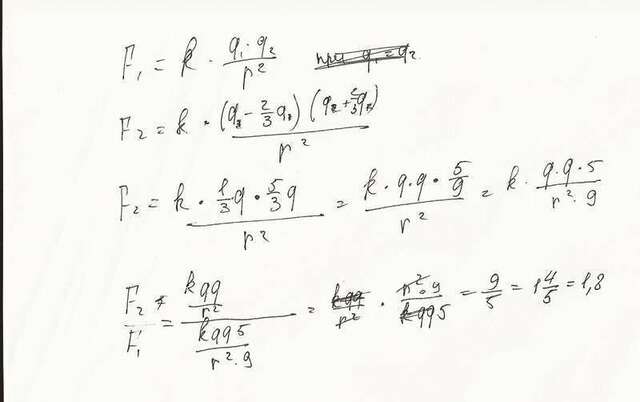 F₁ = k · q₁·q₂/r² при q₁=q₂
F₂ = k · (q₁ - 2/3 q₁)(q₂ + 2/3 q₂)/r²
F₂ = k · 1/3 q · 5/3 q/r² = k·q·q·5/9/r² = k · q·q·5/r²·9
F₂/F₁ = kqq/r²/kqq5/r²·9 = kqq/r² · r²·9/kqq5 = 9/5 = 1 4/5 = 1,8